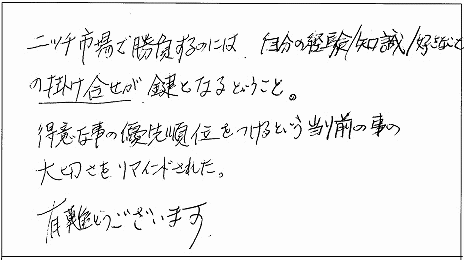 ニッチ市場で勝負するのには、自分の経験/知識/好きなこと
の掛け合せが、鍵となるということ。
得意な事の優先順位をつけるという当り前の事の
大切さをリマインドされた。
有難うございます